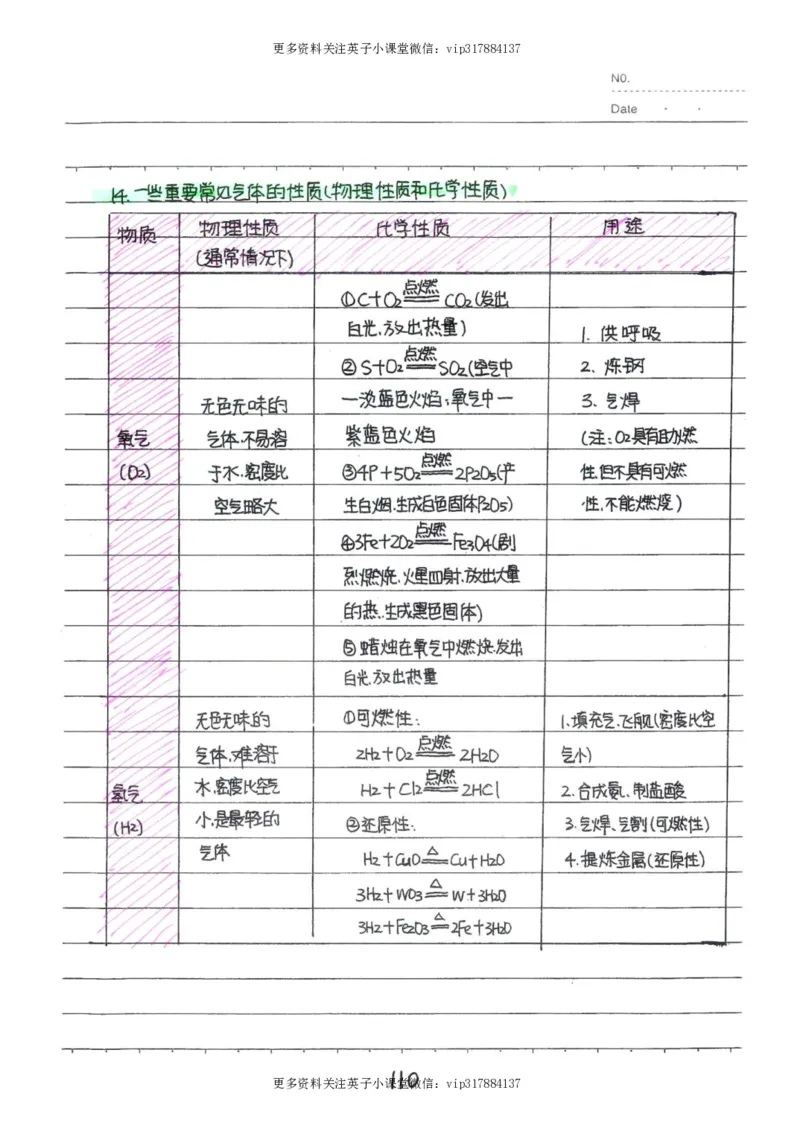 更多资料关注英子小课堂微信：vip317884137
NO.
Date · ·
14.一些重要常见气体的性质(物理性质和化学性质)
物质
物理性质
(通常情况下)
化学性质
用途
氧气
(O2)
无色无味的
气体.不易溶
于水.密度比
空气略大
①C+O2 点燃══ CO2(发出
白光.放出热量)
②S+O2 点燃══ SO2(空气中
一淡蓝色火焰;氧气中一
紫蓝色火焰
③4P+5O2 点燃══ 2P2O5(产
生白烟.生成白色固体P2O5)
④3Fe+2O2 点燃══ Fe3O4(剧
烈燃烧.火星四射.放出大量
的热.生成黑色固体)
⑤蜡烛在氧气中燃烧.发出
白光.放出热量
1. 供呼吸
2. 炼钢
3. 气焊
(注:O2具有助燃
性.但不具有可燃
性.不能燃烧)
氢气
(H2)
无色无味的
气体.难溶于
水.密度比空气
小.是最轻的
气体
①可燃性:
2H2+O2 点燃══ 2H2O
H2+Cl2 点燃══ 2HCl
②还原性:
H2+CuO △══ Cu+H2O
3H2+WO3 △══ W+3H2O
3H2+Fe2O3 △══ 2Fe+3H2O
1.填充气.飞舰(密度比空
气小)
2.合成氨、制盐酸
3.气焊、气割(可燃性)
4.提炼金属(还原性)
110
更多资料关注英子小课堂微信：vip317884137